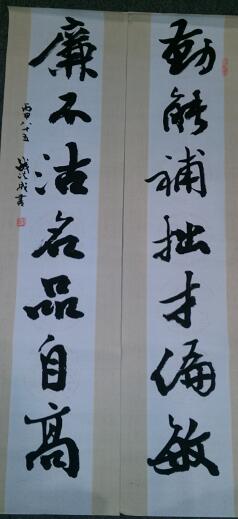 勤能補拙才偏敏
廉不沽名品自高
丙申八十五